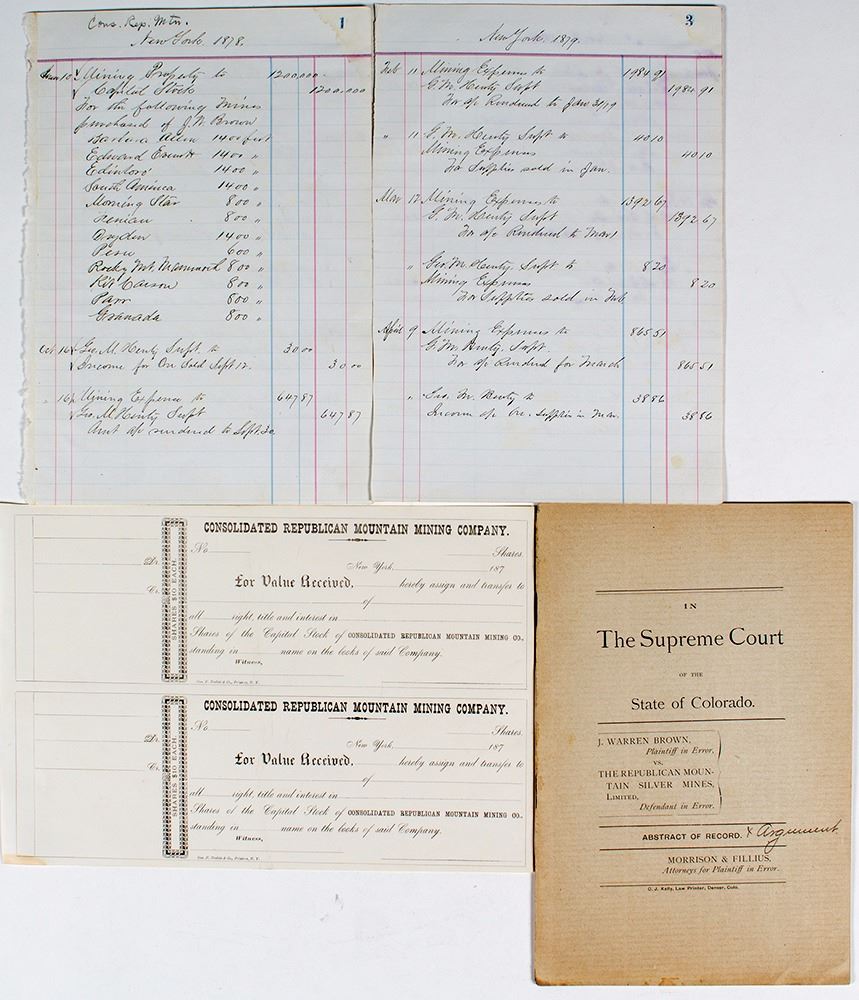 Cons. Rep. Mtn.
1
New York 1878.
Mining Property to 1200,000
Capital Stock 1200,000
For the following Mines
purchased of J. W. Brown
Barbara Allen 1400 feet
Edward Everett 1400 "
Edinboro' 1400 "
South America 1400 "
Morning Star 800 "
Fenian 800 "
Dryden 1400 "
Peru 600 "
Rocky Mt. Mammoth 800 "
Kit Carson 800 "
Parr 800 "
Granada 800 "
Oct 16 Geo. M. Henty Supt. to 30 00
Income for Ore Sold Sept 12. 30 00
" 16 Mining Expense to 647 87
Geo. M. Henty Supt 647 87
Amt a/c rendered to Sept. 30
3
New York 1879.
Feb 11 Mining Expense to 1984 91
G. M. Henty Supt 1984 91
For a/c Rendered to Jan 31/79
" 11 G. M. Henty Supt to 40 10
Mining Expense 40 10
For Supplies sold in Jan.
Mar 12 Mining Expense to 1392 67
G. M. Henty Supt 1392 67
For a/c Rendered to Mar 1
" Geo. M. Henty Supt to 8 20
Mining Expense 8 20
For Supplies sold in Feb
April 9 Mining Expense to 865 51
G. M. Henty Supt. 865 51
For a/c Rendered for March
" Geo. M. Henty to 38 86
Income a/c Ore. Supplies in Mar. 38 86
CONSOLIDATED REPUBLICAN MOUNTAIN MINING COMPANY.
No. Shares.
Dr. New York, 187
For Value Received, hereby assign and transfer to
Cr. of
all right, title and interest in
Shares of the Capital Stock of CONSOLIDATED REPUBLICAN MOUNTAIN MINING CO.,
standing in name on the books of said Company.
Witness,
SHARES $10 EACH.
CONSOLIDATED REPUBLICAN MOUNTAIN MINING COMPANY.
No. Shares.
Dr. New York, 187
For Value Received, hereby assign and transfer to
Cr. of
all right, title and interest in
Shares of the Capital Stock of CONSOLIDATED REPUBLICAN MOUNTAIN MINING CO.,
standing in name on the books of said Company.
Witness,
SHARES $10 EACH.
IN
The Supreme Court
OF THE
State of Colorado.
J. WARREN BROWN,
Plaintiff in Error,
VS.
THE REPUBLICAN MOUN-
TAIN SILVER MINES,
LIMITED,
Defendant in Error.
ABSTRACT OF RECORD. & Argument
MORRISON & FILLIUS,
Attorneys for Plaintiff in Error.
O. J. Kelly, Law Printer, Denver, Colo.